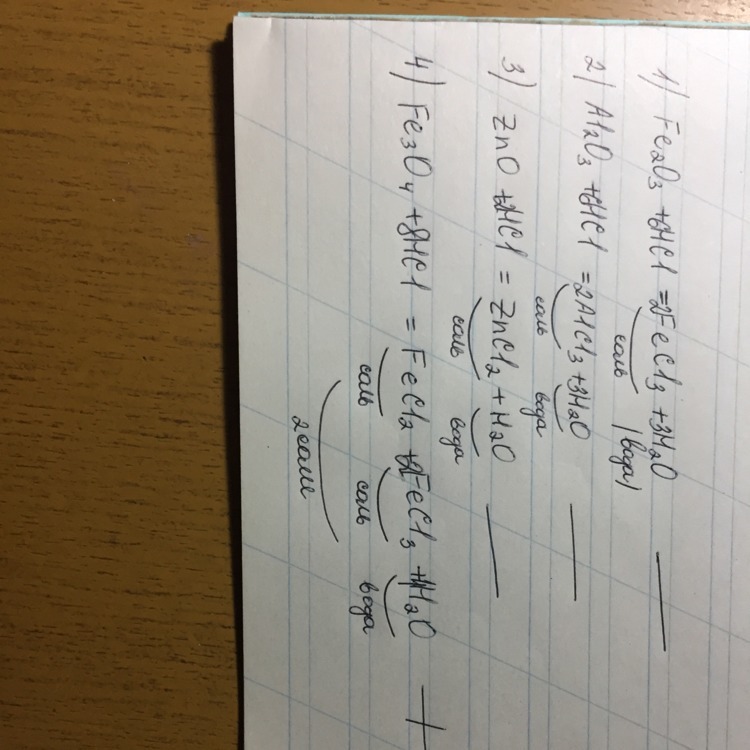 1) Fe₂O₃ + 6HCl = 2FeCl₃ + 3H₂O —
соль (вода)
2) Al₂O₃ + 6HCl = 2AlCl₃ + 3H₂O —
соль вода
3) ZnO + 2HCl = ZnCl₂ + H₂O —
соль вода
4) Fe₃O₄ + 8HCl = FeCl₂ + 2FeCl₃ + 4H₂O +
соль соль вода
2 соли